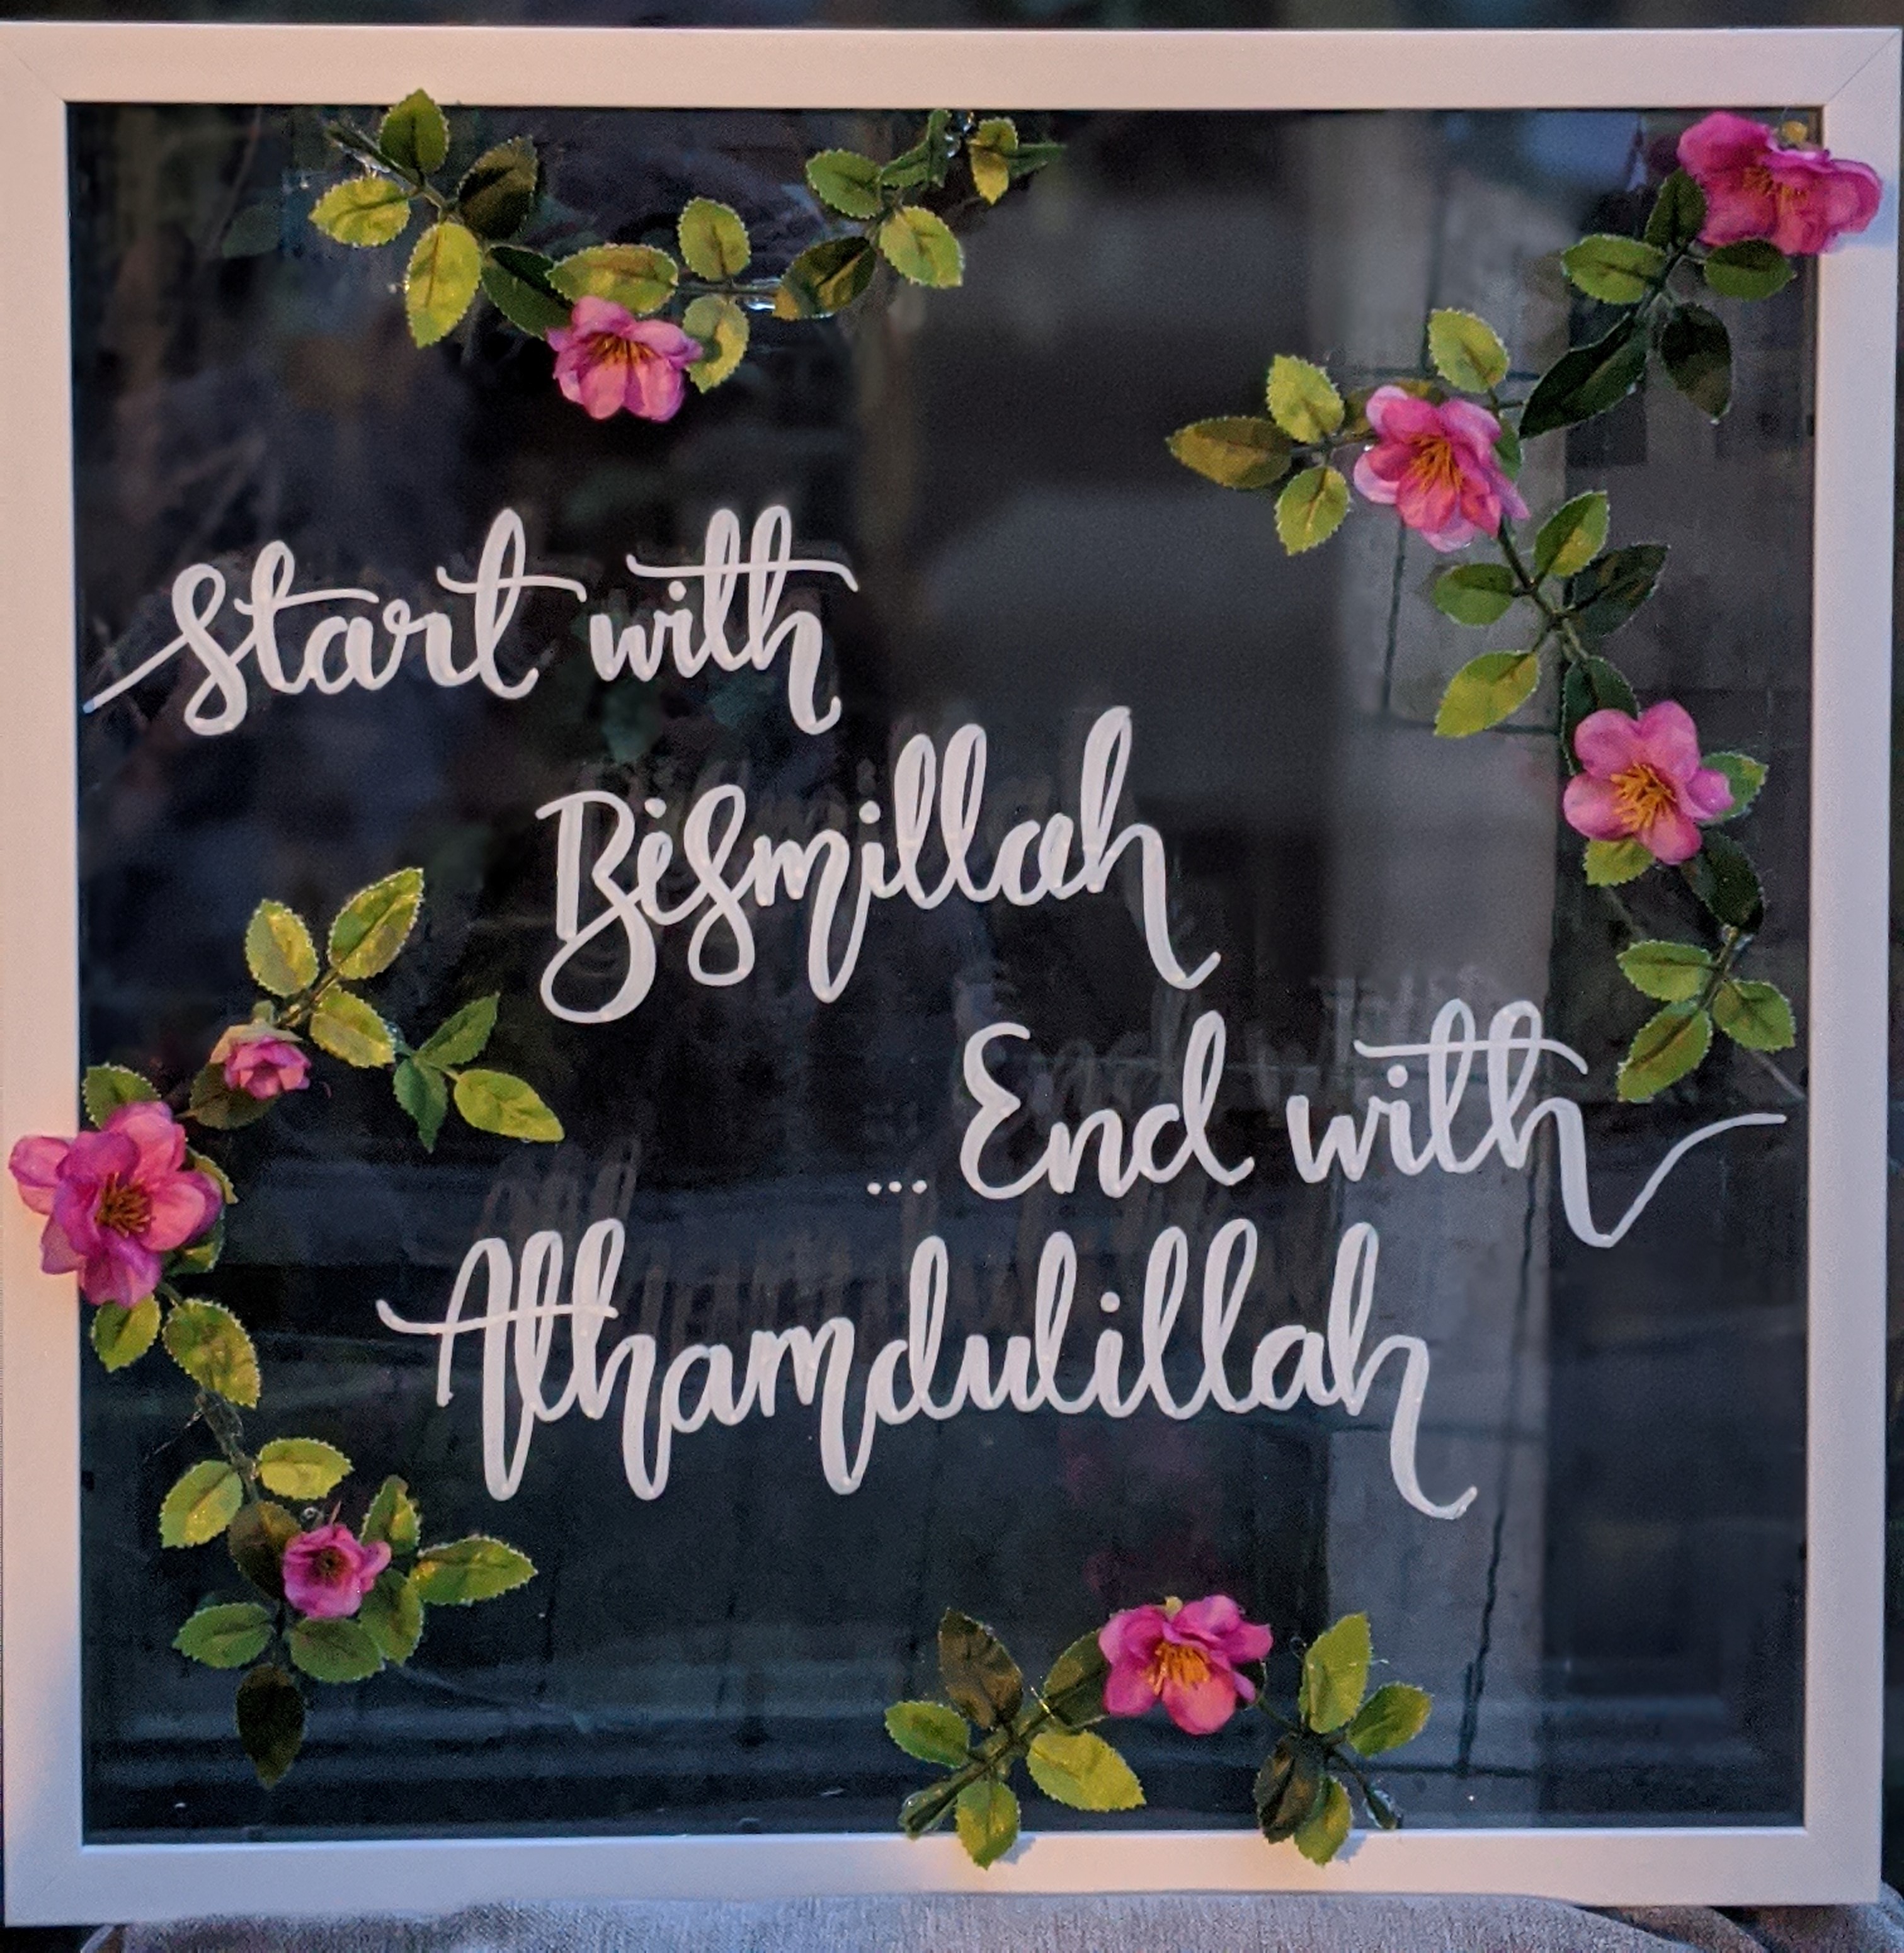 Start with
Bismillah
... End with
Alhamdulillah